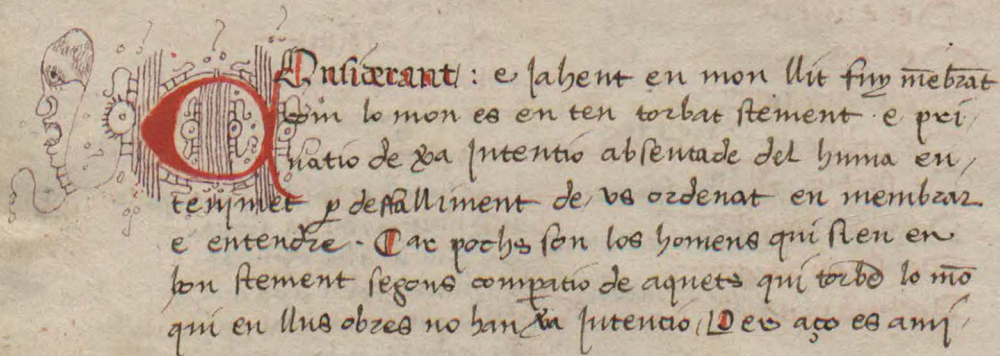 Considerant : e Jahent en mon llit fuy mēbrāt
Com lo mon es en ten torbat stement · e pri/
vatio de xa Intentio absentade del huma en/
tenjmēt ꝑ defalliment de vs ordenat en membrar
e entendre · Car pochs son los homens qui sien en
bon stement segons compatio de aquets qui torbē lo mō
qui en llus obres no han xa Intencio / Per aço es ami/